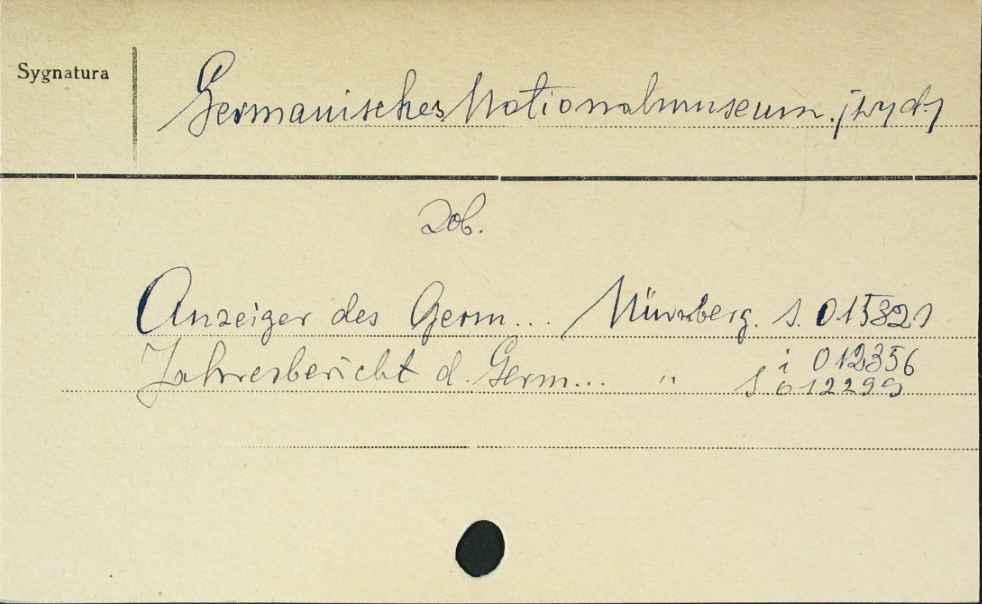 Sygnatura
Germanisches Nationalmuseum. /wyd/
Zob.
Anzeiger des Germ... Nürnberg. S. 015321
Jahresbericht d. Germ... " S i 012356
012299